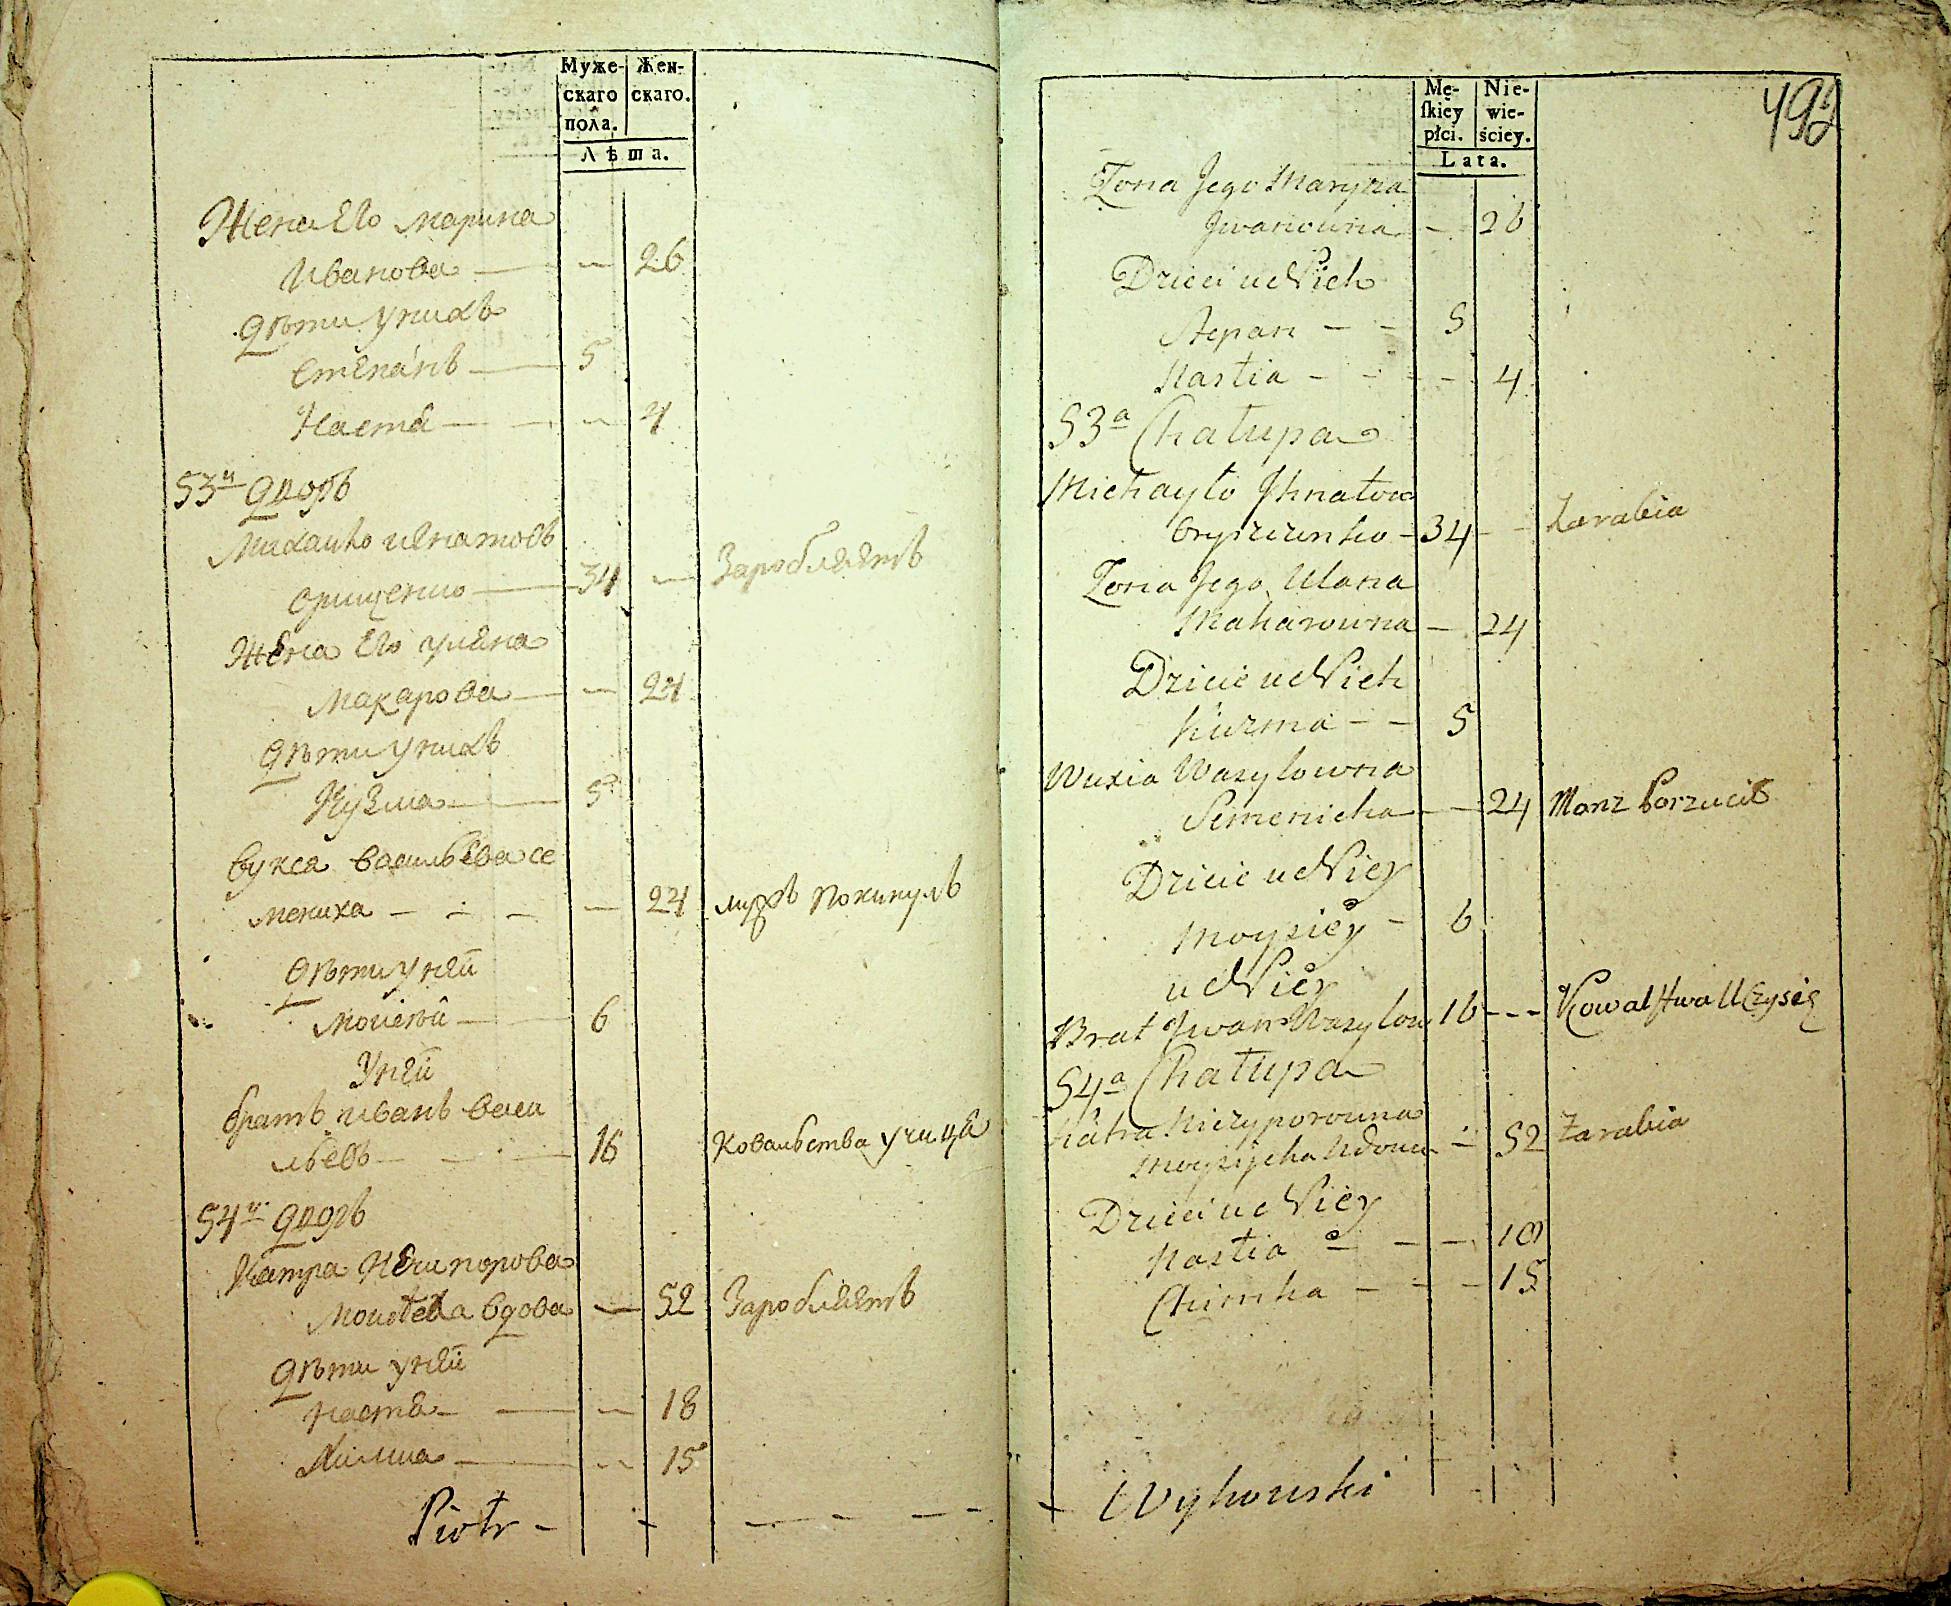 Муже-
скаго
пола.
Жен-
скаго.
Лѣта.
Жена Его Марина
Иванова — — 26
Дѣти Унихъ
Степанъ — 5
Настя — — 4
53й Дворъ
Михайло Игнатовъ
Орищенко — 34 — Заробляетъ
Жена Его Уляна
Макарова — — 24
Дѣти Унихъ
Кузма — 5
Вукся Васильева Се
мениха — — — 24 мужъ Покинулъ
Дѣти Уней
Моисей — 6
Уней
братъ Иванъ Васи
льевъ — 16 Ковальства Учица
54й Дворъ
Катра Нечипорова
вдова — 52 Заробляетъ
Дѣти Уней
Настя — — 18
Химка — — 15
Piotr - - - - -
492
Mę-
skiey
płci.
Nie-
wie-
ściey.
Lata.
Żona Jego Maryna
Jwanowna — 26
Dzieci u Nich
Stepan — — 5
Nastia — — — 4
53a Chałupa
Michayło Jhnatow
Oryszczenko — 34 — Zarabia
Żona Jego Ulana
Makarowna — 24
Dziecie u Nich
Kuzma — — 5
Wuxia Wasylowna
Semenicha — — 24 Monz Porzucił
Dziecie u Niey
Moysiey — 6
u Niey
Brat Jwan Wasylow 16 - - - Kowalstwa Uczysię
54a Chałupa
Katra Niczyporowna
Moysijcha Wdowa — 52 Zarabia
Dzieci u Niey
Nastia — — — 18
Chimka — — — 15
- Wyhowski